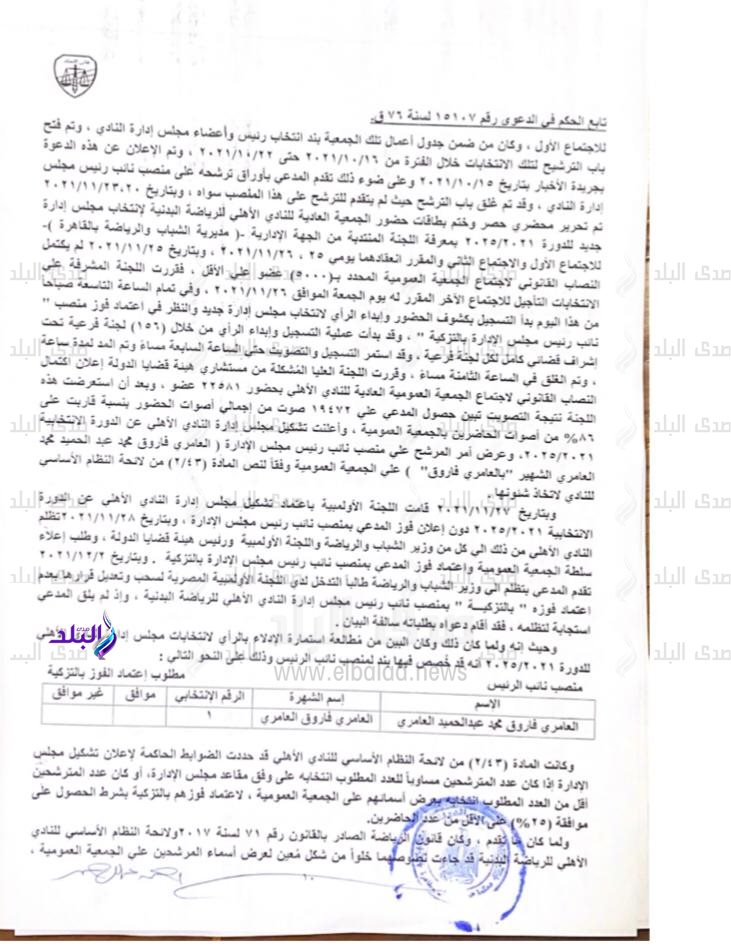 تابع الحكم في الدعوى رقم ١٥١٠٧ لسنة ٧٦ ق.
للاجتماع الأول ، وكان من ضمن جدول أعمال تلك الجمعية بند انتخاب رئيس وأعضاء مجلس إدارة النادي ، وتم فتح
باب الترشيح لتلك الانتخابات خلال الفترة من ٢٠٢١/١٠/١٦ حتى ٢٠٢١/١٠/٢٢ ، وتم الإعلان عن هذه الدعوة
بجريدة الأخبار بتاريخ ٢٠٢١/١٠/١٥ وعلى ضوء ذلك تقدم المدعي بأوراق ترشحه على منصب نائب رئيس مجلس
إدارة النادي ، وقد تم غلق باب الترشح حيث لم يتقدم للترشح على هذا المنصب سواه ، وبتاريخ ٢٠٢١/١١/٢٣،٢٠
تم تحرير محضري حصر وختم بطاقات حضور الجمعية العادية للنادي الأهلي للرياضة البدنية لإنتخاب مجلس إدارة
جديد للدورة ٢٠٢٥/٢٠٢١ بمعرفة اللجنة المنتدبة من الجهة الإدارية -( مديرية الشباب والرياضة بالقاهرة )-
للاجتماع الأول والاجتماع الثاني والمقرر انعقادهما يومي ٢٥ ، ٢٠٢١/١١/٢٦ ، وبتاريخ ٢٠٢١/١١/٢٥ لم يكتمل
النصاب القانوني لاجتماع الجمعية العمومية المحدد بـ(٥٠٠٠) عضو على الأقل ، فقررت اللجنة المشرفة على
الانتخابات التأجيل للاجتماع الآخر المقرر له يوم الجمعة الموافق ٢٠٢١/١١/٢٦ ، وفي تمام الساعة التاسعة صباحاً
من هذا اليوم بدأ التسجيل بكشوف الحضور وإبداء الرأي لانتخاب مجلس إدارة جديد والنظر في اعتماد فوز منصب "
نائب رئيس مجلس الإدارة بالتزكية " ، وقد بدأت عملية التسجيل وإبداء الرأي من خلال (١٥٦) لجنة فرعية تحت
إشراف قضائي كامل لكل لجنة فرعية ، وقد استمر التسجيل والتصويت حتى الساعة السابعة مساءً وتم المد لمدة ساعة
، وتم الغلق في الساعة الثامنة مساءً ، وقررت اللجنة العليا المُشكلة من مستشاري هيئة قضايا الدولة إعلان اكتمال
النصاب القانوني لاجتماع الجمعية العمومية العادية للنادي الأهلي بحضور ٢٢٥٨١ عضو ، وبعد أن استعرضت هذه
اللجنة نتيجة التصويت تبين حصول المدعي علي ١٩٤٧٢ صوت من إجمالي أصوات الحضور بنسبة قاربت على
٨٦% من أصوات الحاضرين بالجمعية العمومية ، وأعلنت تشكيل مجلس إدارة النادي الأهلي عن الدورة الانتخابية
٢٠٢٥/٢٠٢١، وعرض أمر المرشح علي منصب نائب رئيس مجلس الإدارة ( العامري فاروق محمد عبد الحميد محمد
العامري الشهير "بالعامري فاروق" ) علي الجمعية العمومية وفقاً لنص المادة (٢/٤٣) من لائحة النظام الأساسي
للنادي لاتخاذ شئونها.
وبتاريخ ٢٠٢١/١١/٢٧ قامت اللجنة الأولمبية باعتماد تشكيل مجلس إدارة النادي الأهلي عن الدورة
الانتخابية ٢٠٢٥/٢٠٢١ دون إعلان فوز المدعي بمنصب نائب رئيس مجلس الإدارة ، وبتاريخ ٢٠٢١/١١/٢٨ تظلم
النادي الأهلي من ذلك الي كل من وزير الشباب والرياضة واللجنة الأولمبية ورئيس هيئة قضايا الدولة ، وطلب إعلاء
سلطة الجمعية العمومية وإعتماد فوز المدعي بمنصب نائب رئيس مجلس الإدارة بالتزكية . وبتاريخ ٢٠٢١/١٢/٢
تقدم المدعي بتظلم الى وزير الشباب والرياضة طالباً التدخل لدي اللجنة الأولمبية المصرية لسحب وتعديل قرارها بعدم
اعتماد فوزه " بالتزكيـــة " بمنصب نائب رئيس مجلس إدارة النادي الأهلي للرياضة البدنية ، وإذ لم يلق المدعي
استجابة لتظلمه ، فقد أقام دعواه بطلباته سالفة البيان .
وحيث إنه ولما كان ذلك وكان البين من مُطالعة استمارة الإدلاء بالرأي لانتخابات مجلس إدارة الأهلي
للدورة ٢٠٢٥/٢٠٢١ أنه قد خُصص فيها بند لمنصب نائب الرئيس وذلك على النحو التالي :
منصب نائب الرئيس مطلوب إعتماد الفوز بالتزكية
الإسم إسم الشهرة الرقم الإنتخابي موافق غير موافق
العامري فاروق محمد عبدالحميد العامري العامري فاروق العامري ١
وكانت المادة (٢/٤٣) من لائحة النظام الأساسي للنادي الأهلي قد حددت الضوابط الحاكمة لإعلان تشكيل مجلس
الإدارة إذا كان عدد المترشحين مساوياً للعدد المطلوب انتخابه على وفق مقاعد مجلس الإدارة، أو كان عدد المترشحين
أقل من العدد المطلوب انتخابه بعرض أسمائهم على الجمعية العمومية ، لاعتماد فوزهم بالتزكية بشرط الحصول على
موافقة (٢٥%) على الأقل من عدد الحاضرين.
ولما كان ما تقدم ، وكان قانون الرياضة الصادر بالقانون رقم ٧١ لسنة ٢٠١٧ ولائحة النظام الأساسي للنادي
الأهلي للرياضة البدنية قد جاءت نصوصهما خلواً من شكل مُعين لعرض أسماء المرشحين علي الجمعية العمومية ،
صدى البلد
www.elbalad.news